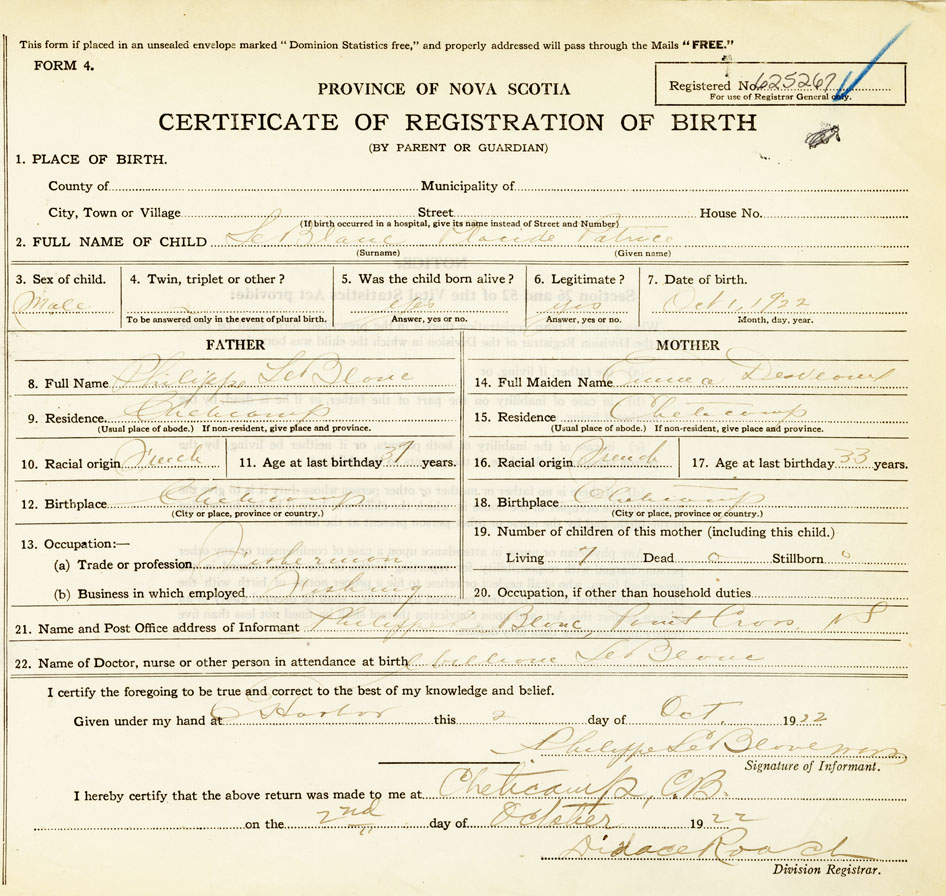 This form if placed in an unsealed envelope marked "Dominion Statistics free," and properly addressed will pass through the Mails "FREE."
FORM 4.
Registered No. 625267
For use of Registrar General only.
PROVINCE OF NOVA SCOTIA
CERTIFICATE OF REGISTRATION OF BIRTH
(BY PARENT OR GUARDIAN)
1. PLACE OF BIRTH.
County of Municipality of
City, Town or Village Street House No.
(If birth occurred in a hospital, give its name instead of Street and Number)
2. FULL NAME OF CHILD LeBlanc Claude Patrice
(Surname) (Given name)
3. Sex of child. 4. Twin, triplet or other? 5. Was the child born alive? 6. Legitimate? 7. Date of birth.
Male yes yes Oct 1, 1922
To be answered only in the event of plural birth. Answer, yes or no. Answer, yes or no. Month, day, year.
FATHER MOTHER
8. Full Name Philippe LeBlanc 14. Full Maiden Name Emma Deveaux
9. Residence. Cheticamp 15. Residence Cheticamp
(Usual place of abode.) If non-resident, give place and province. (Usual place of abode.) If non-resident, give place and province.
10. Racial origin French 11. Age at last birthday 37 years. 16. Racial origin French 17. Age at last birthday 33 years.
12. Birthplace Cheticamp 18. Birthplace Cheticamp
(City or place, province or country.) (City or place, province or country.)
13. Occupation:— 19. Number of children of this mother (including this child.)
(a) Trade or profession Fisherman Living 7 Dead 0 Stillborn 0
(b) Business in which employed Fishing 20. Occupation, if other than household duties
21. Name and Post Office address of Informant Philippe Le Blanc, Point Cross NS
22. Name of Doctor, nurse or other person in attendance at birth LeBlanc
I certify the foregoing to be true and correct to the best of my knowledge and belief.
Given under my hand at Harbor this 2 day of Oct. 1922
Philippe LeBlanc
Signature of Informant.
I hereby certify that the above return was made to me at Cheticamp, C.B.
on the 2nd day of October 1922
Didace Roach
Division Registrar.